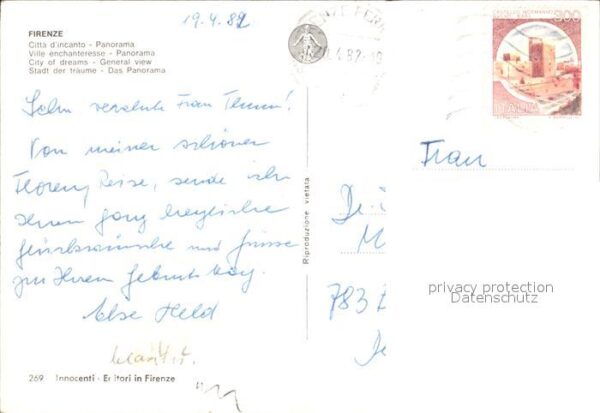 19.4.82
FIRENZE
Città d'incanto - Panorama
Ville enchanteresse - Panorama
City of dreams - General view
Stadt der träume - Das Panorama
300
ITALIA
Sehr verehrte Frau
Von meiner schönen
Florenz Reise, sende ich
Ihnen ganz herzliche
Glückwünsche und Grüsse
zu Ihrem Geburtstag.
Else Held
Frau
783
Riproduzione vietata
privacy protection
Datenschutz
269 Innocenti - Editori in Firenze